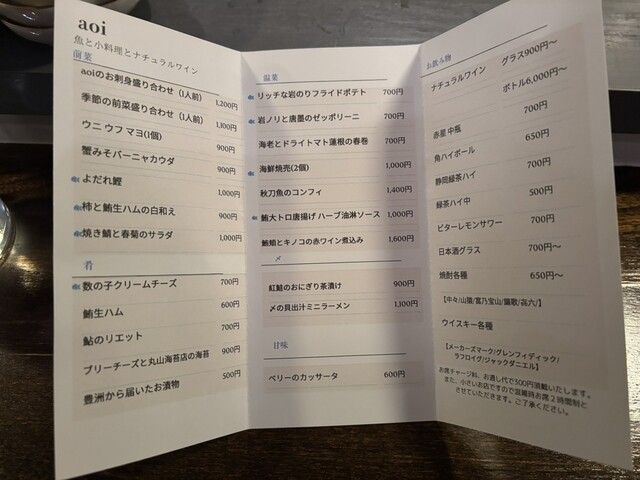 aoi
魚と小料理とナチュラルワイン
前菜
aoiのお刺身盛り合わせ（1人前） 1,200円
季節の前菜盛り合わせ（1人前） 1,100円
ウニ ウフ マヨ(1個) 900円
蟹みそバーニャカウダ 900円
よだれ鰹 1,000円
柿と鮪生ハムの白和え 900円
焼き鯖と春菊のサラダ 1,000円
肴
数の子クリームチーズ 700円
鮪生ハム 600円
鮎のリエット 700円
ブリーチーズと丸山海苔店の海苔 900円
豊洲から届いたお漬物 500円
温菜
リッチな岩のりフライドポテト 700円
岩ノリと唐墨のゼッポリーニ 700円
海老とドライトマト蓮根の春巻 700円
海鮮焼売(2個) 1,000円
秋刀魚のコンフィ 1,400円
鮪大トロ唐揚げ ハーブ油淋ソース 1,000円
鮪頬とキノコの赤ワイン煮込み 1,600円
〆
紅鮭のおにぎり茶漬け 900円
〆の貝出汁ミニラーメン 1,100円
甘味
ベリーのカッサータ 600円
お飲み物
ナチュラルワイン グラス900円～
ボトル6,000円～
赤星 中瓶 700円
角ハイボール 650円
静岡緑茶ハイ 700円
緑茶ハイ中 500円
ビターレモンサワー 700円
日本酒グラス 700円～
焼酎各種 650円～
【中々/山猿/富乃宝山/
ウイスキー各種
【メーカーズマーク/グレンフィディック/
ラフロイグ/ジャックダニエル】
お席チャージ料、お通し代で500円頂戴いたします。
また、小さいお店ですので混雑時お席２時間制と
させていただきます。ご了承ください。